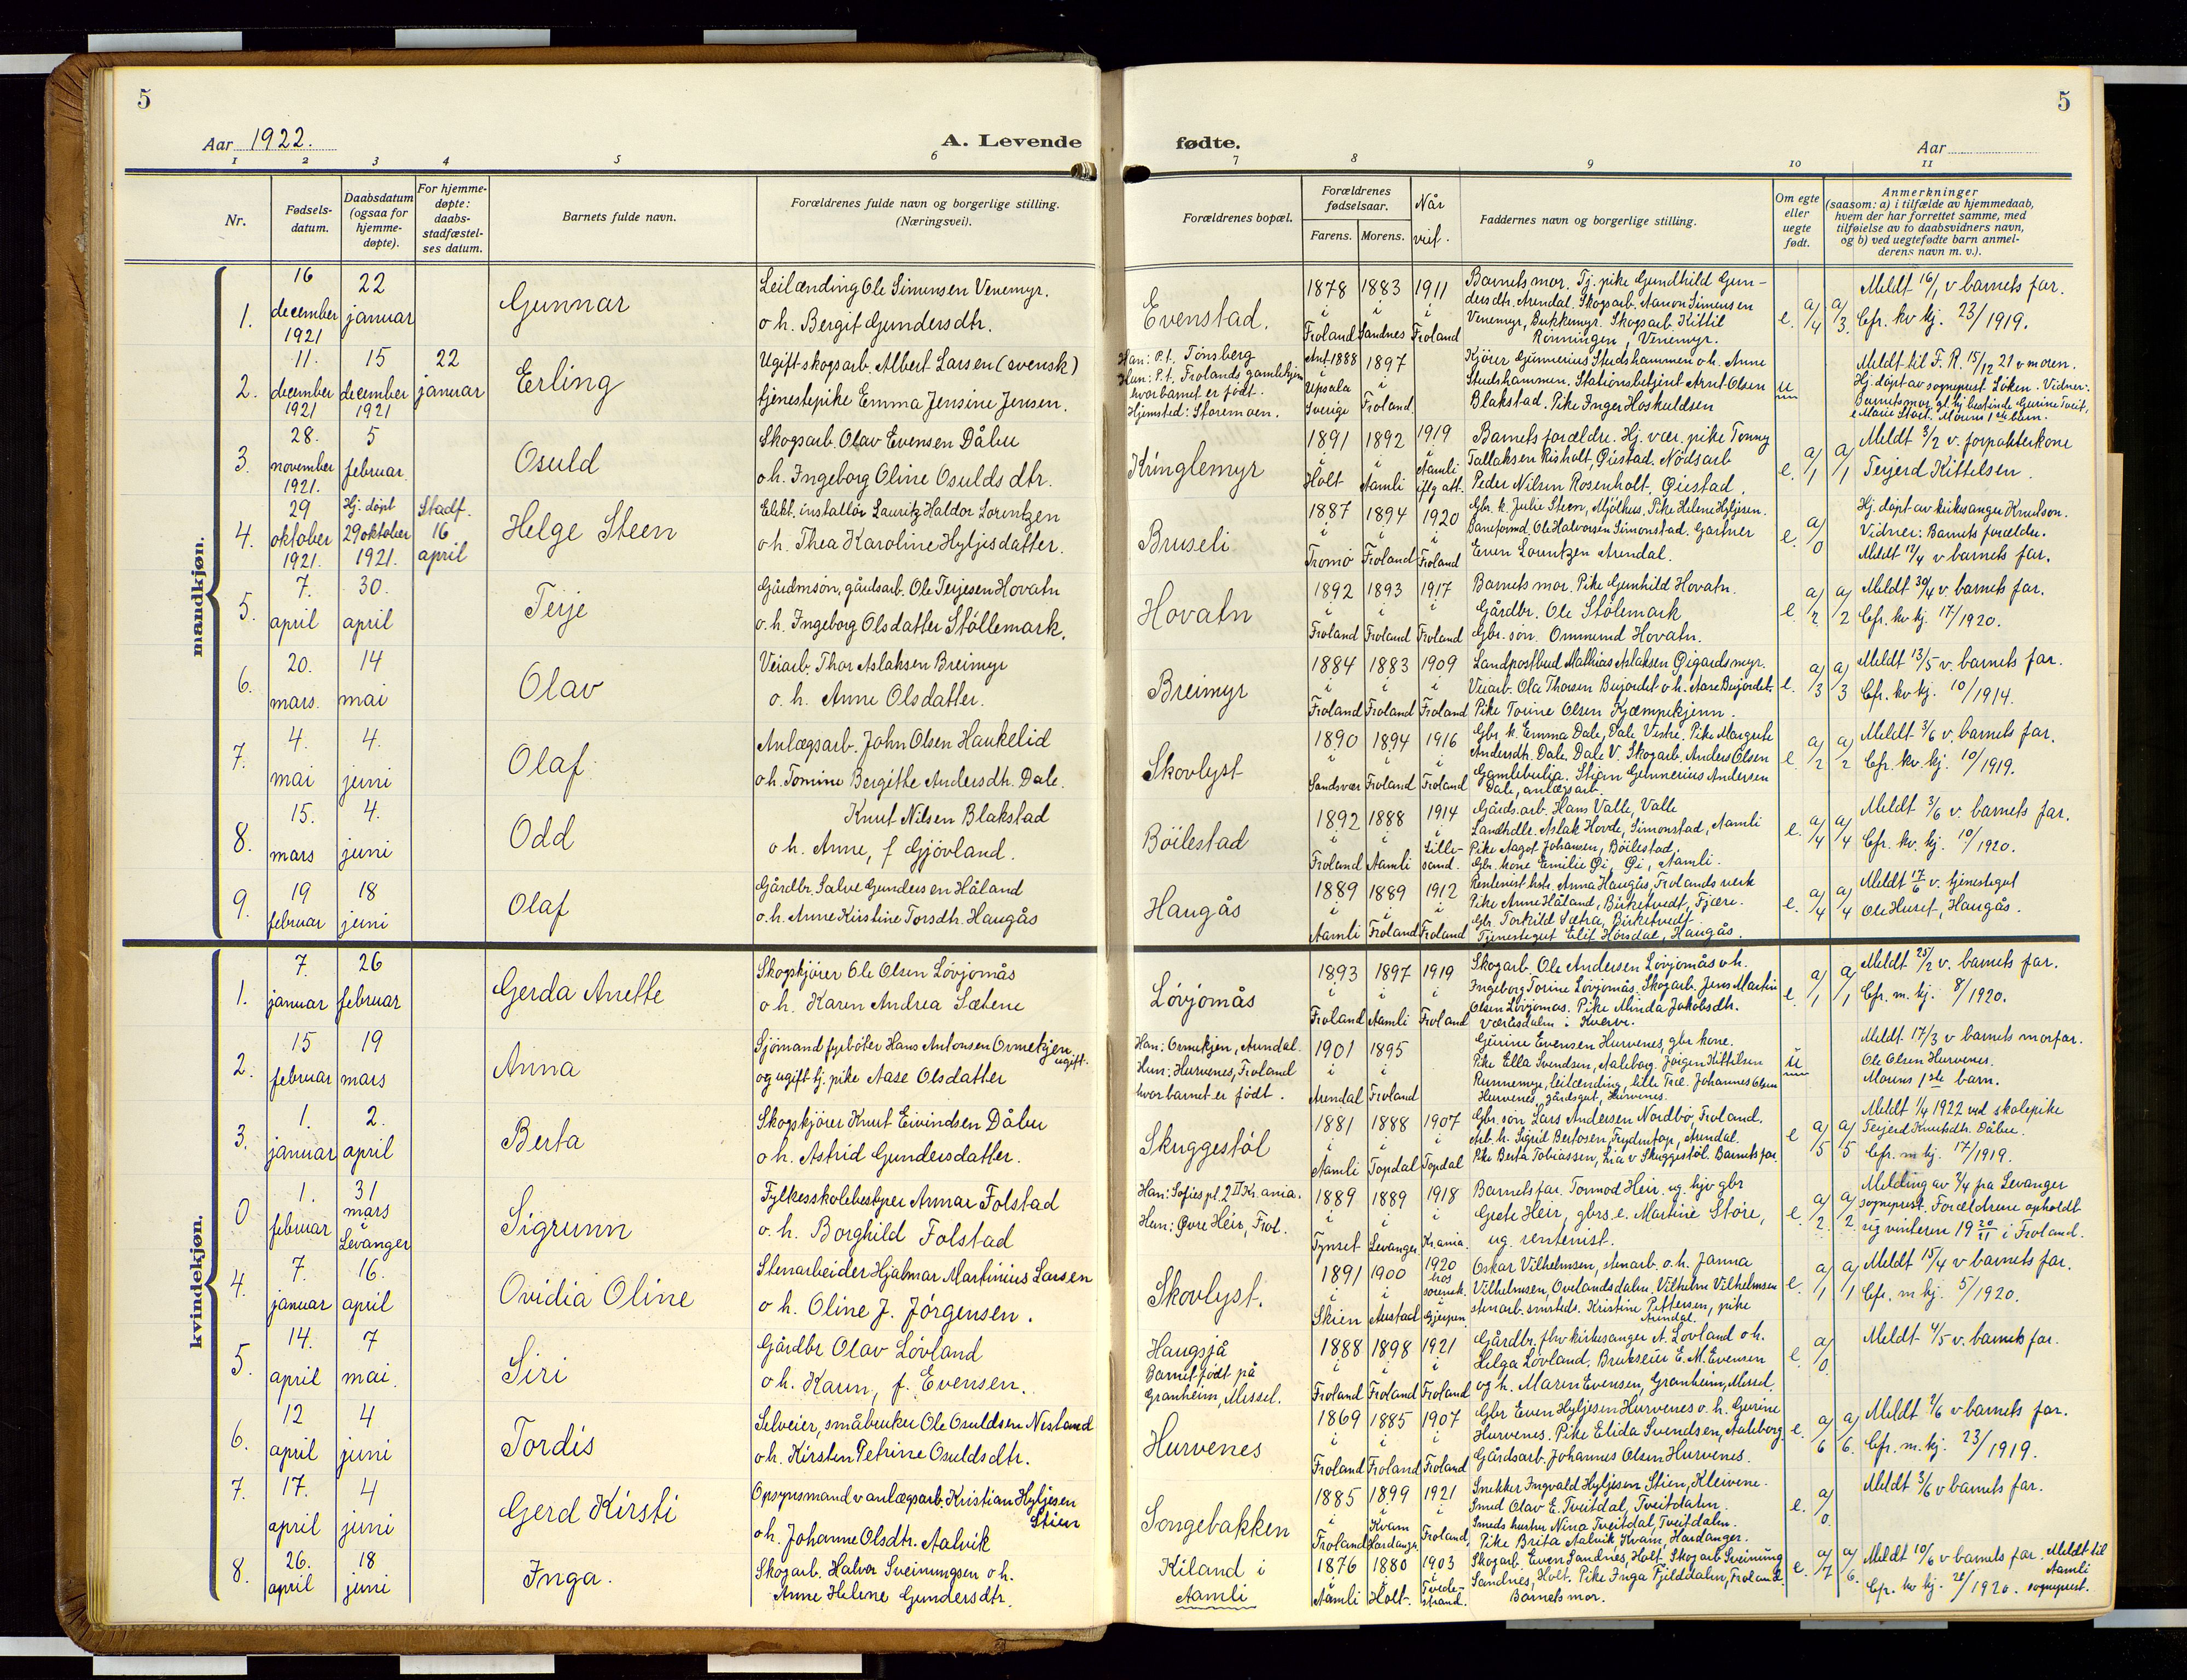 5
Aar 1922.
A. Levende
1 2 3 4 5 6
Nr.
Fødsels-
datum.
Daabsdatum
(ogsaa for
hjemme-
døpte).
For hjemme-
døpte:
daabs-
stadfæstel-
ses datum.
Barnets fulde navn.
Forældrenes fulde navn og borgerlige stilling.
(Næringsvei).
mandkjøn.
1. 16 december 1921 22 januar Gunnar
Leilænding Ole Simensen Venemyr.
o h. Bergit Gundersdtr.
2. 11. december 1921 15 december 1921 22 januar Erling
Ugift skogsarb. Albert Larsen (svensk)
tjenestepike Emma Jensine Jensen.
3. 28. november 1921. 5 februar Osuld
Skogsarb. Olav Evensen Dåbu
o h. Ingeborg Oline Osulds dtr.
4. 29 oktober 1921. Hj. døpt 29 oktober 1921. Stadf. 16 april Helge Steen
Elekt. installør Lauritz Haldor Lorentzen
o h. Thea Karoline Hyljesdatter.
5. 7. april 30. april Terje
Gårdmsøn, gårdsarb. Ole Terjesen Hovatn
o. h. Ingeborg Olsdatter Stöllemark.
6. 20. mars. 14 mai Olav
Veiarb. Thor Aslaksen Breimyr
o. h. Anne Olsdatter.
7. 4. mai 4. juni Olaf
Anlægsarb. John Olsen Haukelid
o h. Tomine Bergithe Andersdtr. Dale.
8. 15. mars 4. juni Odd
Knut Nilsen Blakstad
o h. Anne, f Gjövland.
9. 19 februar 18 juni Olaf
Gårdbr. Salve Gundersen Håland
o. h. Anne Kirstine Torsdtr. Haugås
kvindekjøn.
1. 7. januar 26 februar Gerda Anette
Skogskjører Ole Olsen Lövjomås
o h. Karen Andrea Sætene
2. 15 februar 19 mars Anna
Sjömand fyrböter Hans Antonsen Ormekjen ugift.
og ugift tj. pike Aase Olsdatter
3. 1. januar 2. april Berta
Skogskjører Knut Eivindsen Dåbu
o h. Astrid Gundersdatter.
0 1. februar 31 mars i Levanger Sigrunn
Fylkesskolebestyrer Armar Folstad
o. h. Borghild Folstad
4. 7. januar 16. april Ovidia Oline
Stenarbeider Hjalmar Martinius Larsen
o h. Oline J. Jörgensen.
5. 14. april 7 mai. Siri
Gårdbr Olav Lövland
o h. Karen, f. Evensen.
6. 12 april 4 juni Tordis
Selveier, småbruker Ole Osuldsen Nesland
o h. Kirsten Petrine Osuldsdtr.
7. 17. april 4 juni Gerd Kirsti
Opsynsmand v anlægsarb. Kristian Hyljesen Stien
o h. Johanne Olsdtr. Aalvik
8. 26. april 18 juni Inga.
Skogarb. Halvor Sveinungsen o h.
Anne Helene Gundersdtr.
5
fødte.
Aar
7 8 9 10 11
Forældrenes bopæl.
Forældrenes
fødselsaar.
Farens. Morens.
Når
viet.
Faddernes navn og borgerlige stilling.
Om egte
eller
uegte
født.
Anmerkninger
(saasom: a) i tilfælde av hjemmedaab,
hvem der har forrettet samme, med
tilføielse av to daabsvidners navn,
og b) ved uegtefødte barn anmel-
derens navn m. v.).
Evenstad. 1878 i Froland 1883 i Sandnes 1911 i Froland
Barnets mor. Tj. pike Gundhild Gun-
dersdtr. Arendal. Skogsarb. Aanon Simensen
Venemyr, Bukkemyr. Skogsarb. Kittil
Rønningen, Venemyr.
e. a/4 a/3.
Meldt 16/1 v barnets far.
Cfr. kv kj. 23/1919.
Han: P.t. Tønsberg
Hun: P.t. Frolands gamlehjem
hvor barnet er født.
Hjemsted: Storemoen.
Ant 1888 i Upsala Sverige 1897 i Froland.
Kjörer Gunnerius Stedshammen o h. Anne
Studshammen. Stationsbetjent Arnt Olsen
Blakstad. Pike Inger Hoskuldsen
u
Meldt til F. R. 15/12 21 v moren.
Hj. døpt av sogneprest Löken. Vidner:
Barnets mor, gl. hj. bestinde Gurine Tveit,
Morens 1ste barn.
Kringlemyr 1891 i Holt 1892 i Aamli 1919 i Aamli iflg att.
Barnets forældre. Hj. vær. pike Tenny
Tallaksen Risholt, Øiestad. Nödsarb
Peder Nilsen Rosenholt, Øiestad.
e. a/1 a/1
Meldt 3/2 v. forpakterkone
Terjerd Kittelsen.
Bruseli 1887 i Tromö 1894 i Froland 1920 i Froland
Gbr. k. Julie Steen, Mjölhus. Pike Helene Hyljesen.
Baneformd. Ole Halvorsen Simonstad. Gartner
Even Lorentzen Arendal.
e. a/0
Hj. døpt av kirkesanger Knudson.
Vidner: Barnets forældre.
Meldt 12/4 v barnets far.
Hovatn 1892 i Froland 1893 i Froland 1917 i Froland
Barnets mor. Pike Gunhild Hovatn.
Gårdbr. Ole Stölemark
Gbr. søn. Ommund Hovatn.
e. a/2. a/2
Meldt 30/4 v. barnets far.
Cfr. kv kj. 17/1920.
Breimyr 1884 i Froland 1883 i Froland 1909 i Froland
Landpostbud Mathias Aslaksen Øigardsmyr.
Veiarb. Ole Thorsen Beijordet o h. Aase Beijordet.
Pike Torine Olsen Kjæmpekjenn.
e. a/3 a/3
Meldt 13/5 v. barnets far.
Cfr. kv kj. 10/1914.
Skovlyst 1890 i Sandsvær 1894 i Froland 1916 i Froland
Gbr k. Emma Dale, Dale Vestre. Pike Margrete
Andersdtr. Dale, Dale V. Skogarb. Anders Olsen
Gamlebulia. Stian Gunnerius Andersen
Dale, anlægsarb.
e. a/2 a/2
Meldt 3/6 v. barnets far.
Cfr. kv. kj. 10/1919.
Böilestad 1892 i Froland 1888 i Aamli 1914 i Lille-
sand.
Gårds.arb. Hans Valle, Valle
Landhdle. Aslak Hovde, Simonstad, Aamli
Pike Aagot Johansen, Böilestad,
Gbr. kone Emilie Øi, Øi, Aamli.
e. a/4 a/4
Meldt 3/6 v. barnets far.
Cfr. kv. kj. 10/1920.
Haugås 1889 i Aamli 1889 i Froland 1912 i Froland
Rentenist hstr. Anna Haugås, Frolands verk
Pike Anne Håland, Birketvedt, Fjære.
Gbr. Torkild Sætra, Birketvedt.
Tjenestegut Elif Hörsdal, Haugås.
e. a/4 a/4
Meldt 17/6 v. tjenestegut
Ole Huset, Haugås.
Lövjomås 1893 i Froland 1897 i Aamli 1919 i Froland
Skogarb. Ole Andersen Lövjomås o h.
Ingeborg Torine Lövjomås. Skogarb. Jens Martin
Olsen Lövjomås. Pike Minda Jakobsdtr.
Væråsdalen i Kverve.
e. a/1 a/1
Meldt 25/2 v. barnets far.
Cfr. m. kj. 8/1920.
Han: Ormekjen, Arendal.
Hun: Hurvenes, Froland
hvor barnet er födt.
1901 i Arendal 1895 i Froland
Gurine Evensen Hurvenes, gbr kone.
Pike Ella Svendsen, Aaleborg. Jörgen Kittilsen
Runnemyr, leilænding, lille Træ. Johannes Olsen
Hurvenes, gårdsgut, Hurvenes.
u
Meldt 17/3 v barnets morfar.
Ole Olsen Hurvenes.
Morens 1ste barn.
Skuggestöl 1881 i Aamli 1888 i Topdal 1907 i Topdal
Gbr. søn Lars Andersen Nordbø, Froland.
Arb. h. Sigrid Bertosen, Frydentop, Arendal.
Pike Berta Tobiassen, Lia v Skuggestöl. Barnets far.
e a/5 a/5
Meldt 1/4 1922 ved skolepike
Terjerd Knutsdtr. Dåbu.
Cfr. m kj. 17/1919.
Han: Sofies pl. 2 II Kr.ania.
Hun: Øvre Heir, Frol.
1889 i Tynset 1889 i Levanger 1918 i Kr.ania.
Barnets far. Tormod Heir, ug. hjv gbr
Grete Heir, gbrs. e. Martine Störe,
ug. rentenist.
e. a/2. a/2.
Melding av 3/4 fra Levanger
sogneprest. Forældrene opholdt
sig vinteren 19 20/21 i Froland.
Skovlyst. 1891 i Skien 1900 i Austad 1920 hos sorensk. i Gjerpen.
Oskar Vilhelmsen, stenarb. o. h. Janna
Vilhelmsen, Ovelandsdalen. Vilhelm Vilhelmsen
stenarb. smsteds. Kristine Pettersen, pike
Arendal.
e. a/1 a/1
Meldt 15/4 v barnets far.
Cfr. m kj. 5/1920.
Haugsjå
Barnet født på
Granheim, Messel.
1888 i Froland 1898 i Froland 1921 i Froland
Gårdbr. fhv kirkesanger A. Lövland o h.
Helga Lövland. Brukseier E. M. Evensen
og h. Maren Evensen, Granheim, Messel.
e. a/0.
Meldt 4/5 v. barnets far.
Hurvenes 1869 i Froland 1885 i Froland 1907 i Froland
Gbr Even Hyljesen Hurvenes o. h. Gurine
Hurvenes. Pike Elida Svendsen, Aaleborg
Gårdsarb. Johannes Olsen Hurvenes.
e. a/6 a/6.
Meldt 2/6 v barnets far.
Cfr. m. kj. 23/1919.
Songebakken 1885 i Froland 1899 i Kvam Hardanger 1921 i Froland
Snekker Ingvald Hyljesen Stien, Kleivene.
Smed Olav E. Tveitdal, Tveitdalen.
Smeds hustru Nina Tveitdal, Tveitdalen.
Pike Brita Aalvik, Kvam, Hardanger.
e. a/0.
Meldt 3/6 v barnets far.
Kiland i
Aamli
1876 i Aamli 1880 i Holt. 1903 i Tvede-
strand.
Skogarb. Even Sandnes, Holt. Skogarb Sveinung
Sandnes, Holt. Pike Inga Fjelddalen, Froland.
Barnets mor.
e. a/7 a/6.
Meldt 10/6 v barnets far. Meldt til
Aamli
Cfr. kv kj. 28/1920. sogneprest.